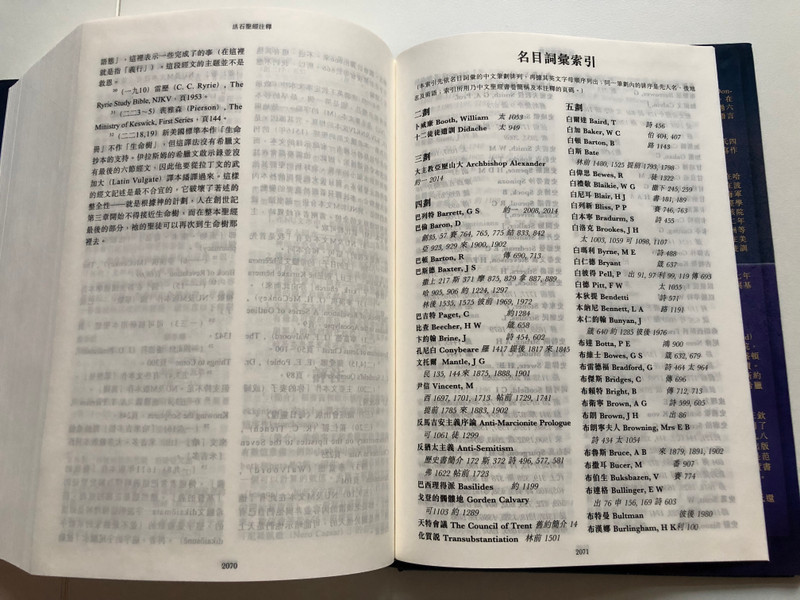 活石聖經注釋
語態」，這裡表示一些完成了的事（在這裡
就是指「義行」）。這段經文的主題並不是
救恩。
(一九10) 雷歷（C. C. Ryrie）, The
Ryrie Study Bible, NJKV，頁1953。
(二二3～5) 裴雅森（Pierson）, The
Ministry of Keswick, First Series，頁144。
(二二18,19) 新美國標準本作「生命
樹」不作「生命冊」，但這譯法沒有希臘文
抄本的支持。伊拉斯姆的希臘文啟示錄並沒
有最後的六節經文，因此他要從拉丁文的武
加大（Latin Vulgate）譯本繙譯過來。這樣
的經文記述是最不合宜的，它破壞了著述的
整全性——就是根據神的計劃，人在創世記
第三章開始不得接近生命樹，而在整本聖經
最後的部分，祂的聖徒可以再次到生命樹那
裡去。
2070
名目詞彙索引
二劃
卜威廉 Booth, William 太 1053
十二使徒遺訓 Didache 太 949
三劃
大主教亞歷山大 Archbishop Alexander
約一 2014
四劃
巴列特 Barrett, G S 約一 2008, 2014
巴倫 Baron, D
創35, 57 賽 764, 765, 775 結 833, 842
亞 925, 929 來 1900, 1902
巴頓 Barton, R 傳 690, 713
巴斯德 Baxter, J S
撒上 217 斯 371 摩 875, 879 拿 887, 889
哈 905, 906 約 1224, 1297
林後 1535, 1575 彼前 1969, 1972
巴吉特 Paget, C 約1284
比查 Beecher, H W 箴 658
卞約翰 Brine, J 詩 454, 602
孔尼白 Conybeare 羅 1417 提後 1817 來 1845
文托爾 Mantle, J G
民 135, 144 來 1875, 1888, 1901
尹信 Vincent, M
西 1697, 1701, 1713 帖前 1729, 1741
提前 1785 來 1883, 1902
反馬吉安主義序論 Anti-Marcionite Prologue
可 1061 徒 1299
反猶太主義 Anti-Semitism
歷史書簡介 172 斯 372 詩 496, 577, 581
弗 1622 帖前 1723
巴西理得派 Basilides 約 1199
戈登的髑髏地 Gorden Calvary
可1103 約 1289
天特會議 The Council of Trent 舊約簡介 14
化質說 Transubstantiation 林前 1501
五劃
白爾達 Baird, T 詩 456
白加 Baker, W C 伯 404, 407
白頓 Barton, B 路 1143
白斯 Bate
林前 1480, 1525 提前 1795, 1798
白偉思 Bewes, R 徒 1322
白禮敬 Blaikie, W G 撒下 245, 259
白尼耳 Blair, H J 書 181, 189
白列新 Bliss, P P 賽 746, 763
白本寧 Bradurm, S 詩 455
白洛克 Brookes, J H
太 1003, 1059 可 1098, 1107
白瑪利 Byrne, M E 詩 488
白仁德 Bryant 箴 637
白彼得 Pell, P 出 91, 97 利 99, 119 傳 693
白德 Pitt, F W 太 1055
本狄提 Bendetti 詩 571
本納尼 Bennett, L A 路 1191
本仁約翰 Bunyan, J
箴 640 約 1285 彼後 1976
布達 Botta, P E 鴻 900
布維士 Bowes, G S 箴 632, 679
布雷德福 Bradford, G 詩 464 太 964
布傑斯 Bridges, C 傳 696
布賴特 Bright, B 傳 712, 713
布衛寧 Brown, A G 詩 599, 605
布朗 Brown, J H 出 86
布朗寧夫人 Browning, Mrs E B
詩 434 太 1054
布魯斯 Bruce, A B 來 1879, 1891, 1902
布撒耳 Bucer, M 番 907
布伯生 Buksbazen, V 賽 774
布達格 Bullinger, E W
出 76 申 156, 169 詩 603
布特曼 Bultman 彼後 1980
布漢娜 Burlingham, H K 利 100
2071